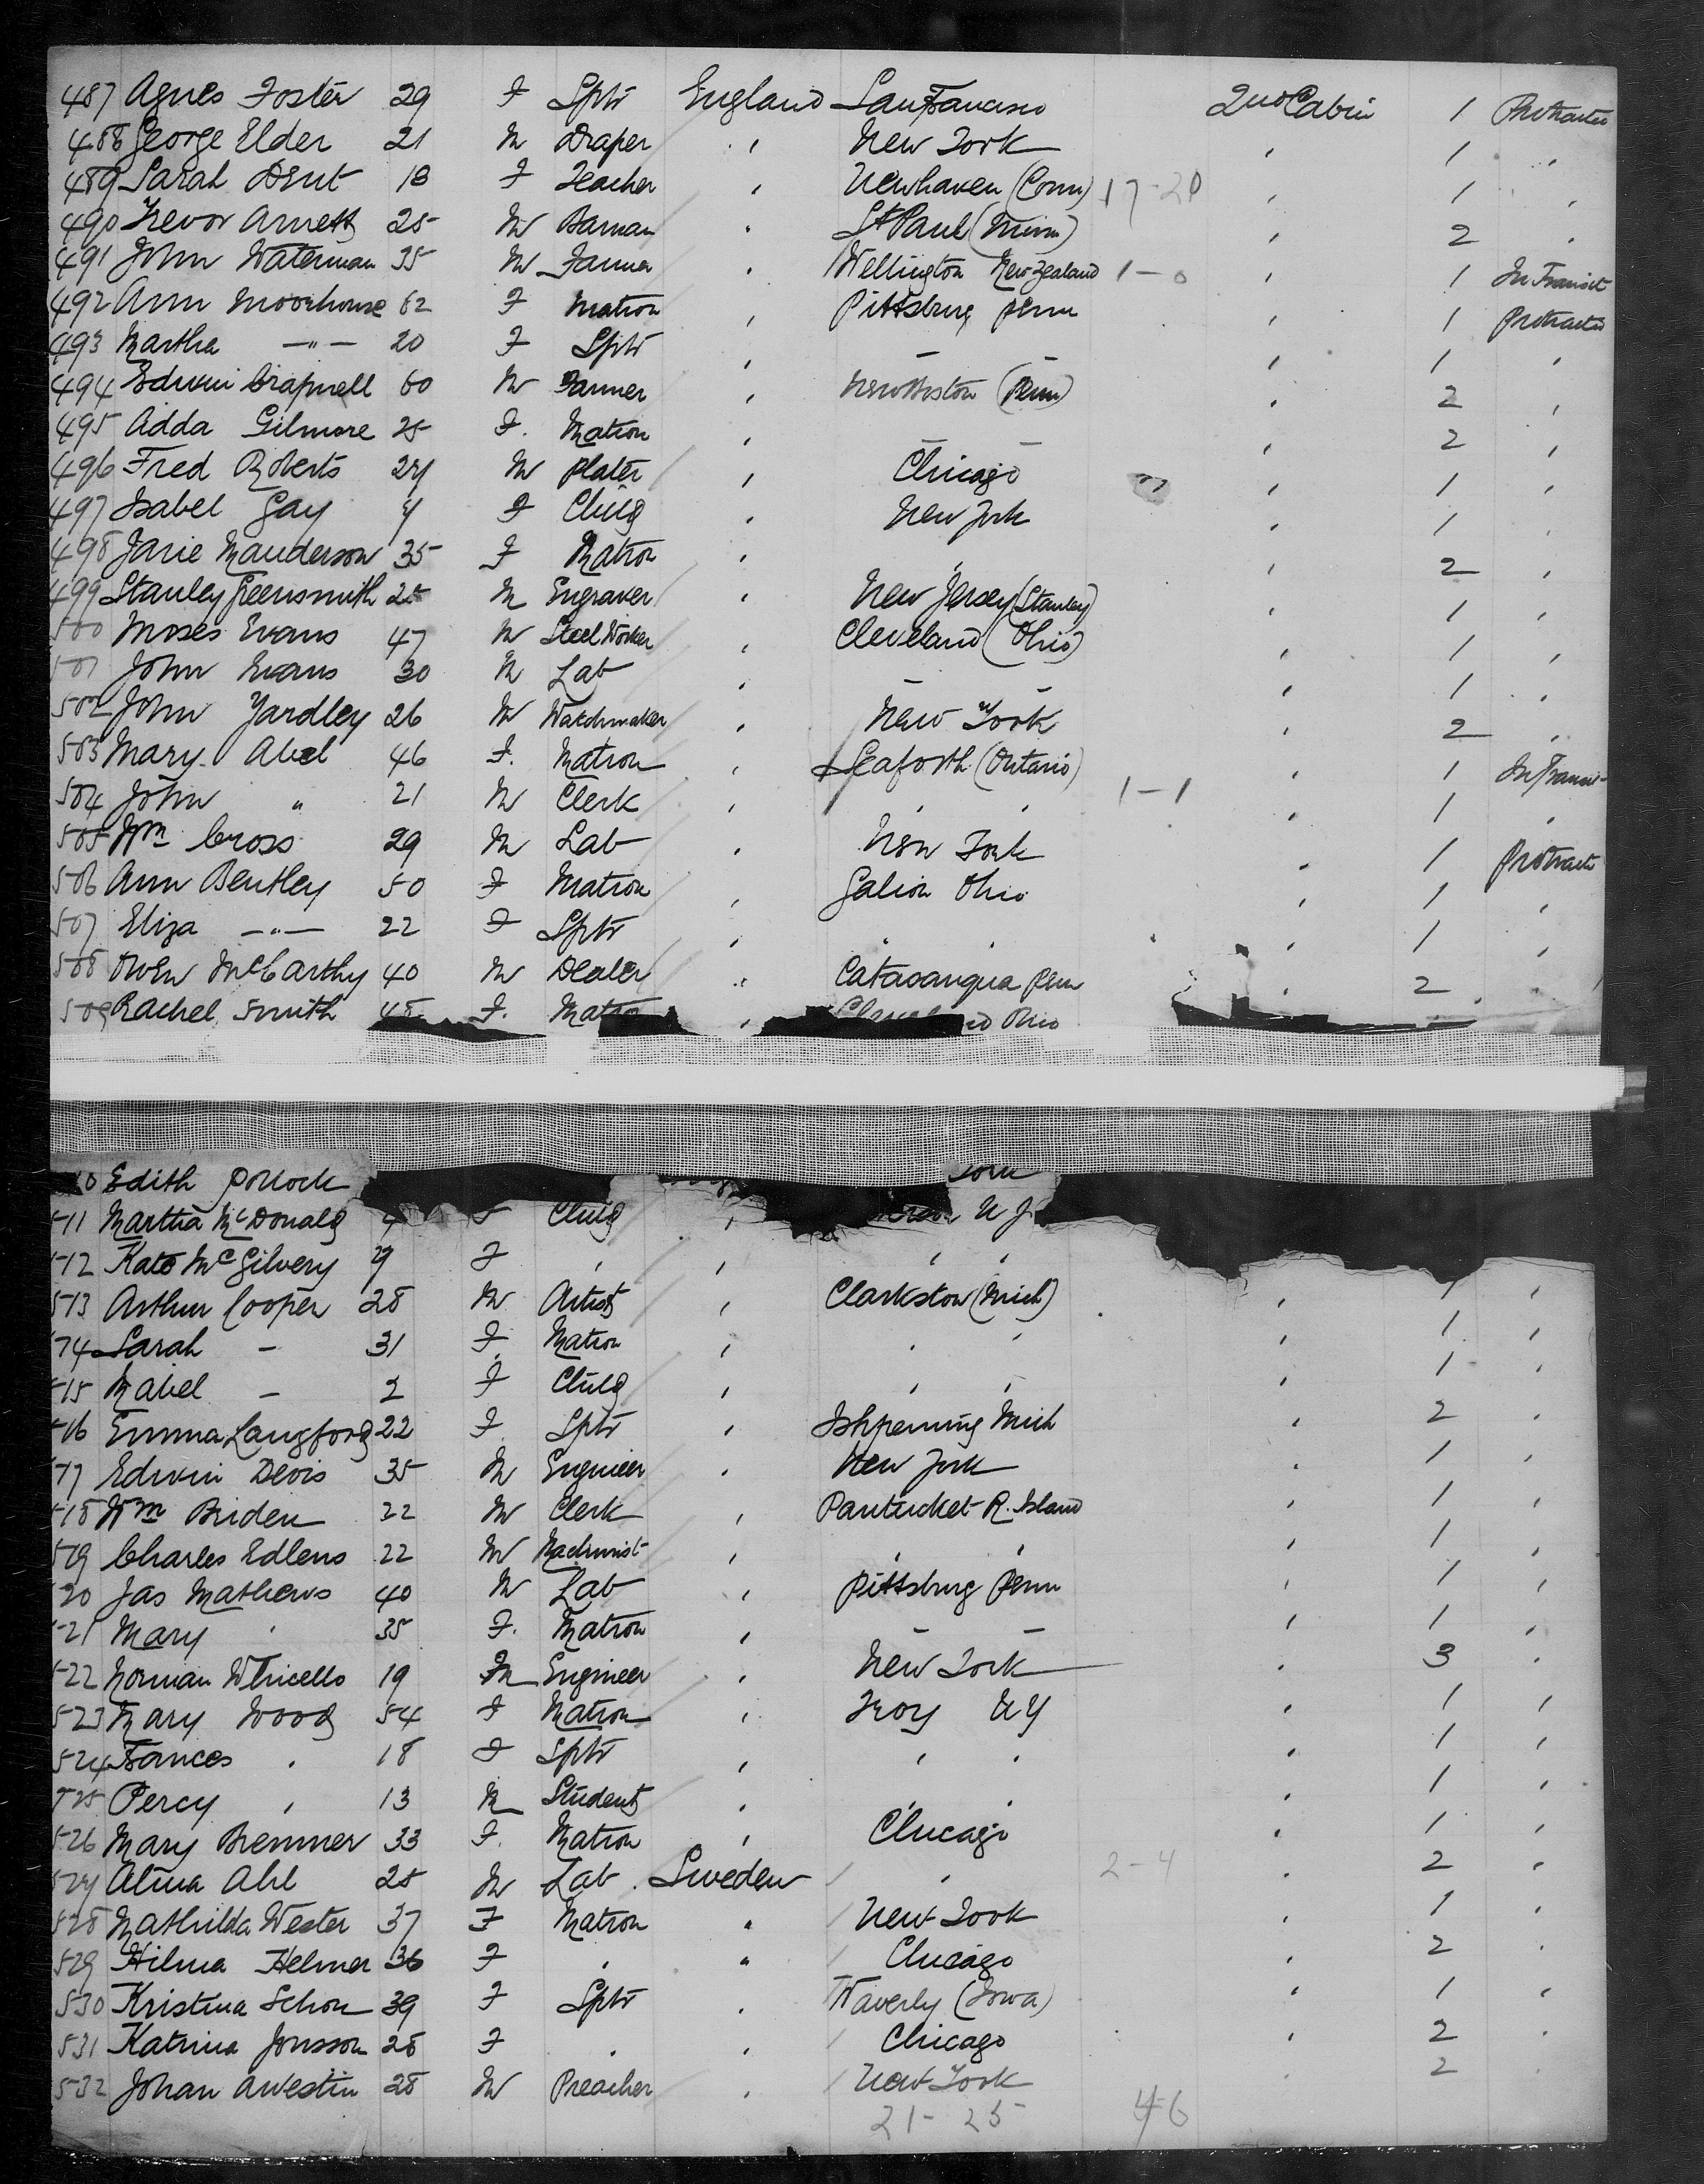 487 Agnes Foster 29 F Sptr England San Francisco 2nd Cabin 1 Protracted
488 George Elder 21 M Draper " New York " 1 "
489 Sarah Dent 18 F Teacher " Newhaven (Conn) 17-20 " 1 "
490 Trevor Arnett 25 M Barman " St Paul (Minn) " 2 "
491 John Waterman 35 M Farmer " Wellington New Zealand 1-0 " 1 In Transit
492 Ann Moorhouse 62 F Matron " Pittsburg Penn " 1 Protracted
493 Martha —"— 20 F Sptr " " 1 "
494 Edwin Crapnell 60 M Farmer " New Boston (Penn) " 2 "
495 Adda Gilmore 25 F. Matron " " 2 "
496 Fred Roberts 24 M Plater " Chicago " 1 "
497 Isabel Gay 4 F Child " New York " 1 "
498 Janie Manderson 35 F Matron " " " 2 "
499 Stanley Greensmith 25 M Engraver " New Jersey (Stanley) " 1 "
500 Moses Evans 47 M Steel Worker " Cleveland (Ohio) " 1 "
501 John Evans 30 M Lab " " 1 "
502 John Yardley 26 M Watchmaker " New York " 2 "
503 Mary Abel 46 F. Matron " Seaforth (Ontario) " 1 In Transit
504 John " 21 M Clerk " " " 1-1 " 1 "
505 Wm Cross 29 M Lab " New York " 1 Protracted
506 Ann Bentley 50 F Matron " Galion Ohio " 1 "
507 Eliza —"— 22 F Sptr " " " 1 "
508 Owen McCarthy 40 M Dealer " Cataoauqua Penn " 2 "
509 Rachel Smith 45 F. Matron " Cleveland Ohio
Edith Pollock York
511 Martha McDonald 4 F Child " N J
512 Kate McGilvery F " " " "
513 Arthur Cooper 28 M Artist " Clarkston (Mich) " 1 "
514 Sarah - 31 F Matron " " " " 1 "
515 Mabel - 2 F Child " " " " 1 "
516 Emma Langford 22 F Sptr " Ishpeming Mich " 2 "
517 Edwin Devis 35 M Engineer " New York " 1 "
518 Wm Briden 22 M Clerk " Pantucket R. Island " 1 "
519 Charles Edlens 22 M Machinist " " " " 1 "
520 Jas Mathews 40 M Lab " Pittsburg Penn " 1 "
521 Mary " 35 F. Matron " " 1 "
522 Norman 19 M Engineer " New York " 3 "
523 Mary Wood 54 F Matron " Troy NY " 1 "
524 Frances " 18 F Sptr " " " " 1 "
525 Percy " 13 M Student " " " " 1 "
526 Mary Bremner 33 F. Matron " Chicago " 1 "
527 Alma Ahl 25 M Lab. Sweden " 2-4 " 2 "
528 Mathilda Wester 37 F Matron " New York " 1 "
529 Hilma Helmer 36 F " " Chicago " 2 "
530 Kristina Schon 39 F Sptr " Waverly (Iowa) " 1 "
531 Katrina Jonsson 28 F " " Chicago " 2 "
532 Johan Avestin 28 M Preacher " New York " 2 "
21-25 46